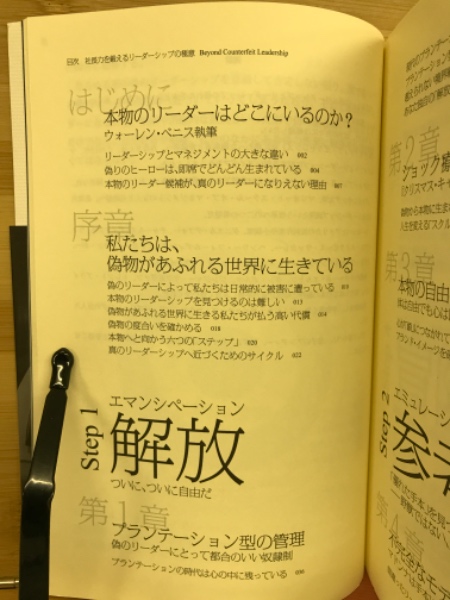 目次 社長力を鍛えるリーダーシップの極意 Beyond Counterfeit Leadership
はじめに
本物のリーダーはどこにいるのか?
ウォーレン・ベニス執筆
リーダーシップとマネジメントの大きな違い 002
偽りのヒーローは、即席でどんどん生まれている 004
本物のリーダー候補が、真のリーダーになりえない理由 007
序章
私たちは、
偽物があふれる世界に生きている
偽のリーダーによって私たちは日常的に被害に遭っている 011
本物のリーダーシップを見つけるのは難しい 013
偽物があふれる世界に生きる私たちが払う高い代償 014
偽物の度合いを確かめる 018
本物へと向かう六つの「ステップ」 020
真のリーダーシップへ近づくためのサイクル 022
Step 1
エマンシペーション
解放
ついに、ついに自由だ
第1章
プランテーション型の管理
偽のリーダーにとって都合のいい奴隷制
プランテーションの時代は心の中に残っている 030
第2章
ショック
第3章
本物の自由
Step 2
エミュレーシ
第4章